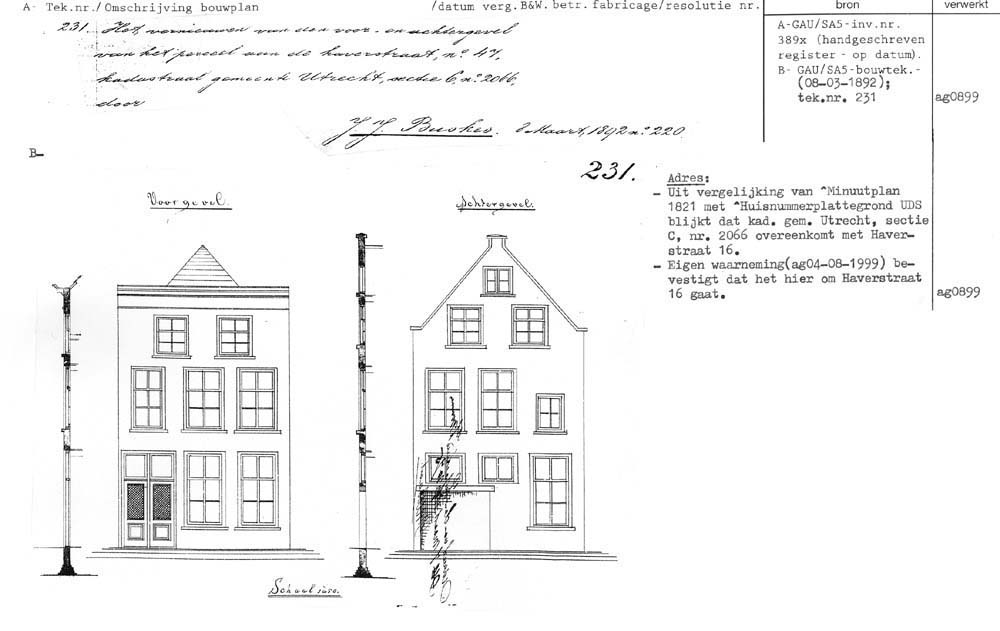 A- Tek.nr./Omschrijving bouwplan /datum verg.B&W. betr. fabricage/resolutie nr. bron verwerkt
231. Het vernieuwen van den voor- en achtergevel
van het perceel aan de haverstraat, no. 47,
kadastraal gemeente Utrecht, sectie C, no. 2066,
door
J. J. Buskes. 8 Maart, 1892 no. 220
A-GAU/SA5-inv.nr.
389x (handgeschreven
register - op datum).
B- GAU/SA5-bouwtek.-
(08-03-1892);
tek.nr. 231 ag0899
B-
231.
Adres:
- Uit vergelijking van ^Minuutplan
1821 met ^Huisnummerplattegrond UDS
blijkt dat kad. gem. Utrecht, sectie
C, nr. 2066 overeenkomt met Haver-
straat 16.
- Eigen waarneming(ag04-08-1999) be-
vestigt dat het hier om Haverstraat
16 gaat. ag0899
Voorgevel.
Achtergevel.
Schaal 1 à 50.